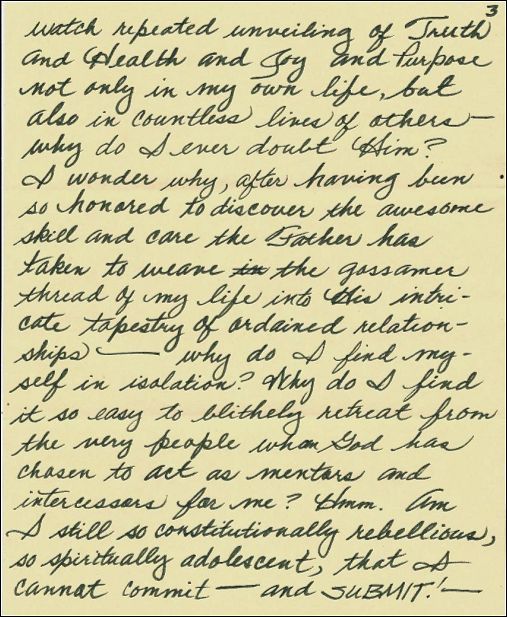 3
watch repeated unveiling of Truth
and Health and Joy and Purpose
not only in my own life, but
also in countless lives of others —
why do I ever doubt Him?
I wonder why, after having been
so honored to discover the awesome
skill and care the Father has
taken to weave in the gossamer
thread of my life into His intri-
cate tapestry of ordained relation-
ships — why do I find my-
self in isolation? Why do I find
it so easy to blithely retreat from
the very people whom God has
chosen to act as mentors and
intercessors for me? Hmm. Am
I still so constitutionally rebellious,
so spiritually adolescent, that I
cannot commit — and SUBMIT! —